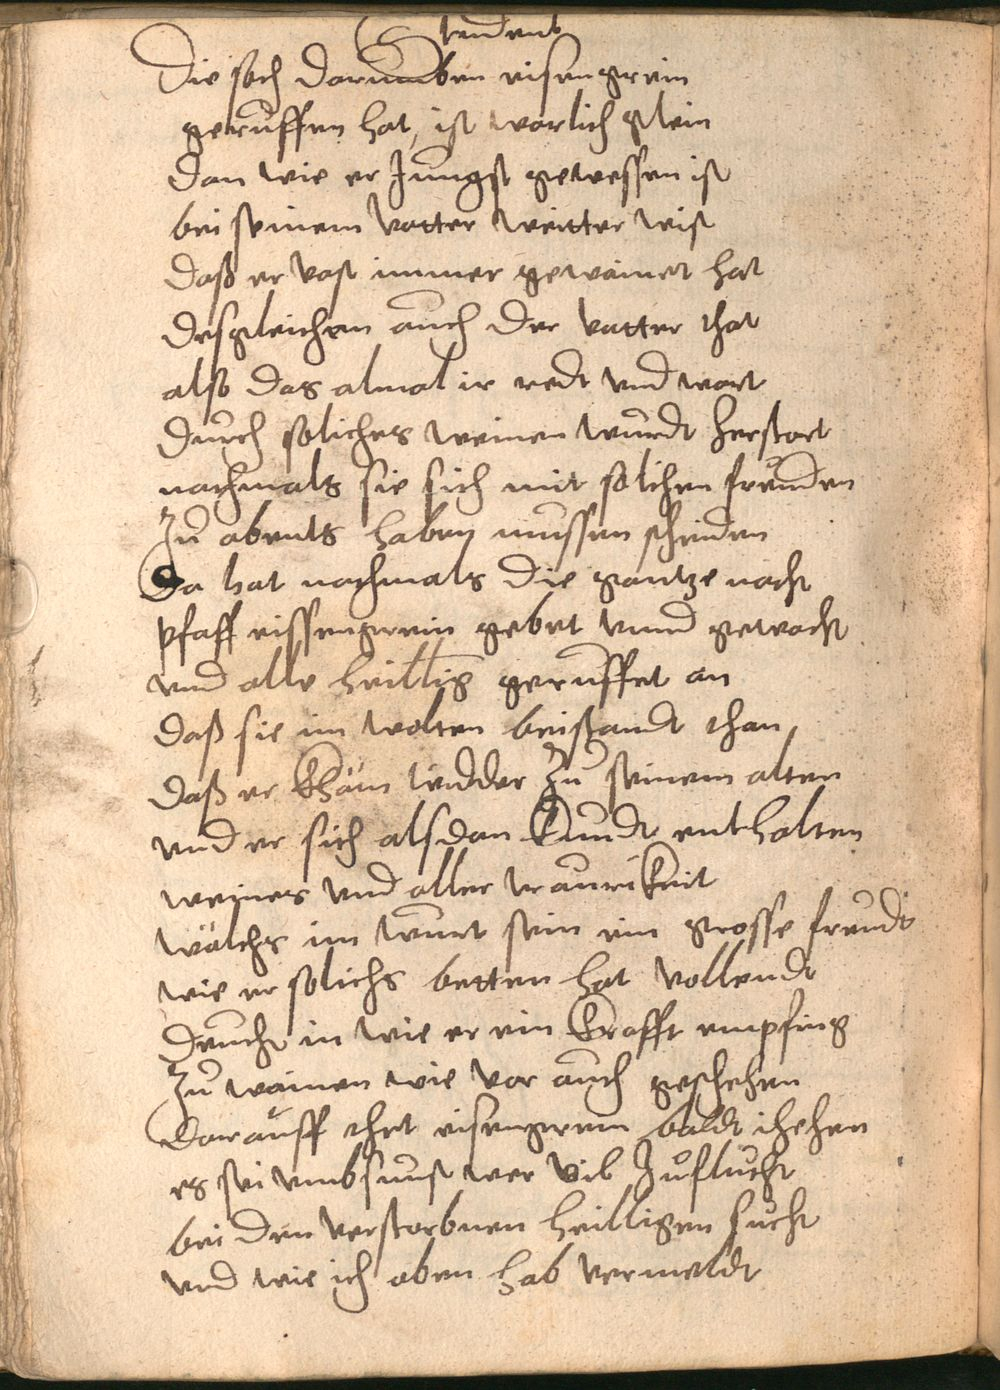 Die sach darumben eisengrein
geruffen hat, ist warlich klein
dan wie er Jungst gewessen ist
bei seinem vatter weitter wist
daß er vast immer gewainet hat
desgleichen auch der vatter that
alß das almal ir redt und wort
durch soliches weinen wurdt zerstort
nachmals sie sich mit solchen freuden
Zu abents haben mussen scheiden
Da hat nachmals die gantze nacht
pfaff eissengrein gebet unnd gewacht
und alle heillig geruffet an
daß sie im wolten beistandt than
daß er kham widder Zu seinem alten
und er sich alsdan kundt enthalten
weines und aller traurikeit
wälchs im wurt sein ein grosse freudt
wie er solichs betten hat vollendt
deucht in wie er ein krafft empfing
Zu wainen wie vor auch geschehen
Darauff thet eisengrein baldt jhehen
es sei umbsunst wer vil Zuflucht
bei den verstorbnen heilligen sucht
und wie ich oben hab vermeldt